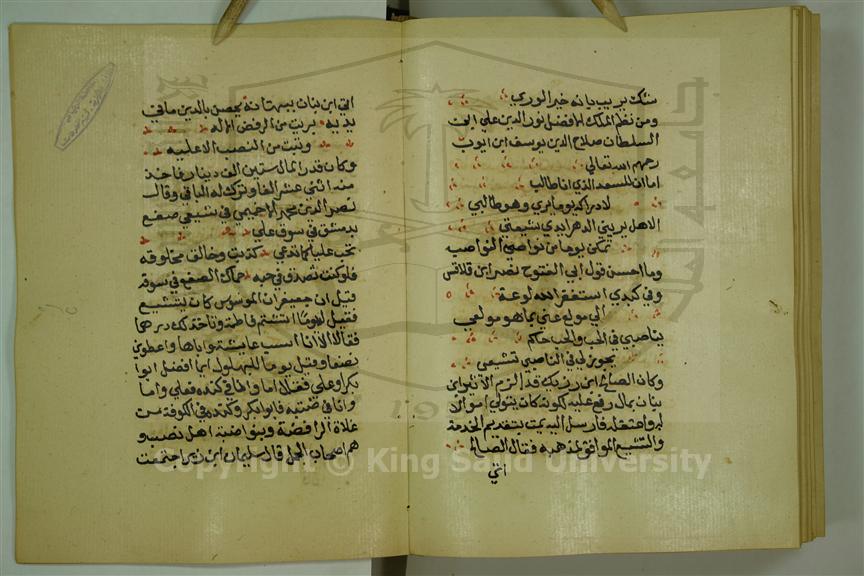 شك يريب بانه خير الوري
ومن نظم الملك الافضل نور الدين علي ابن
السلطان صلاح الدين يوسف ابن ايوب
رحمهم الله تعالي
اما ان للسعد الذي انا طالب
لادراكه يوما يري وهو طالبي
الاهل يريني الدهر ايدي شيعتي
تمكن يوما من نواصي النواصب
وما احسن قول ابي الفتوح نصر ابن قلاقس
وفي كبدي استغفر الله لوعة
الي مولع عني بما هو مولعي
يناصبني في الحب والحب حاكم
يجوز لي في الناصبي تشيعي
وكان الصالح ابن رزيك قد الزم الاثير ابن
بنان بمال رفع عليه لكونه كان يتولي اموالا
له واعتقله فارسل اليه يمت بتقديم الخدمة
والتشيع الموافق لمذهبه فقال الصالح
اتي
اتي ابن بنان ببهتانه يحصن بالدين ما في
يديه برئت من الرفض الا له
وتبت من النصب الا عليه
وكان قدر المال ستين الف دينار فاخذ
منه اثني عشر الفا وترك له الباقي وقال
نصر الدين محمد الاخميمي في تشيعي صفع
بدمشق في سوق علي
تحب عليا كما تدعي كذبت وخالف مخلوقه
فلو كنت تصدق في حبه حماك الصفع في سوقه
وقيل ان جعيفران الموسوس كان يتشيع
فقيل له يوما اتشتم فاطمة وتاخذ لك درهما
فقال لا انا اسب عايشة واباها واعطوني
نصفا وقيل يوما للبهلول ايما افضل ابوا
بكر او علي فقال اما وانا في كنده فعلي واما
وانا في ضبة فابوابكر وكنده في الكوفة من
غلاة الرافضة وبنوا ضبة اهل نصب و
هم اصحاب الجمل قال سليمان ابن اجتمعت
Copyright © King Saud University